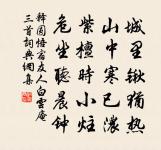 城里秋猶熱
山中寒已濃
紫檀時小炷
危坐聽晨鐘
釋圓悟宿友人白雲庵
三首詞典網集